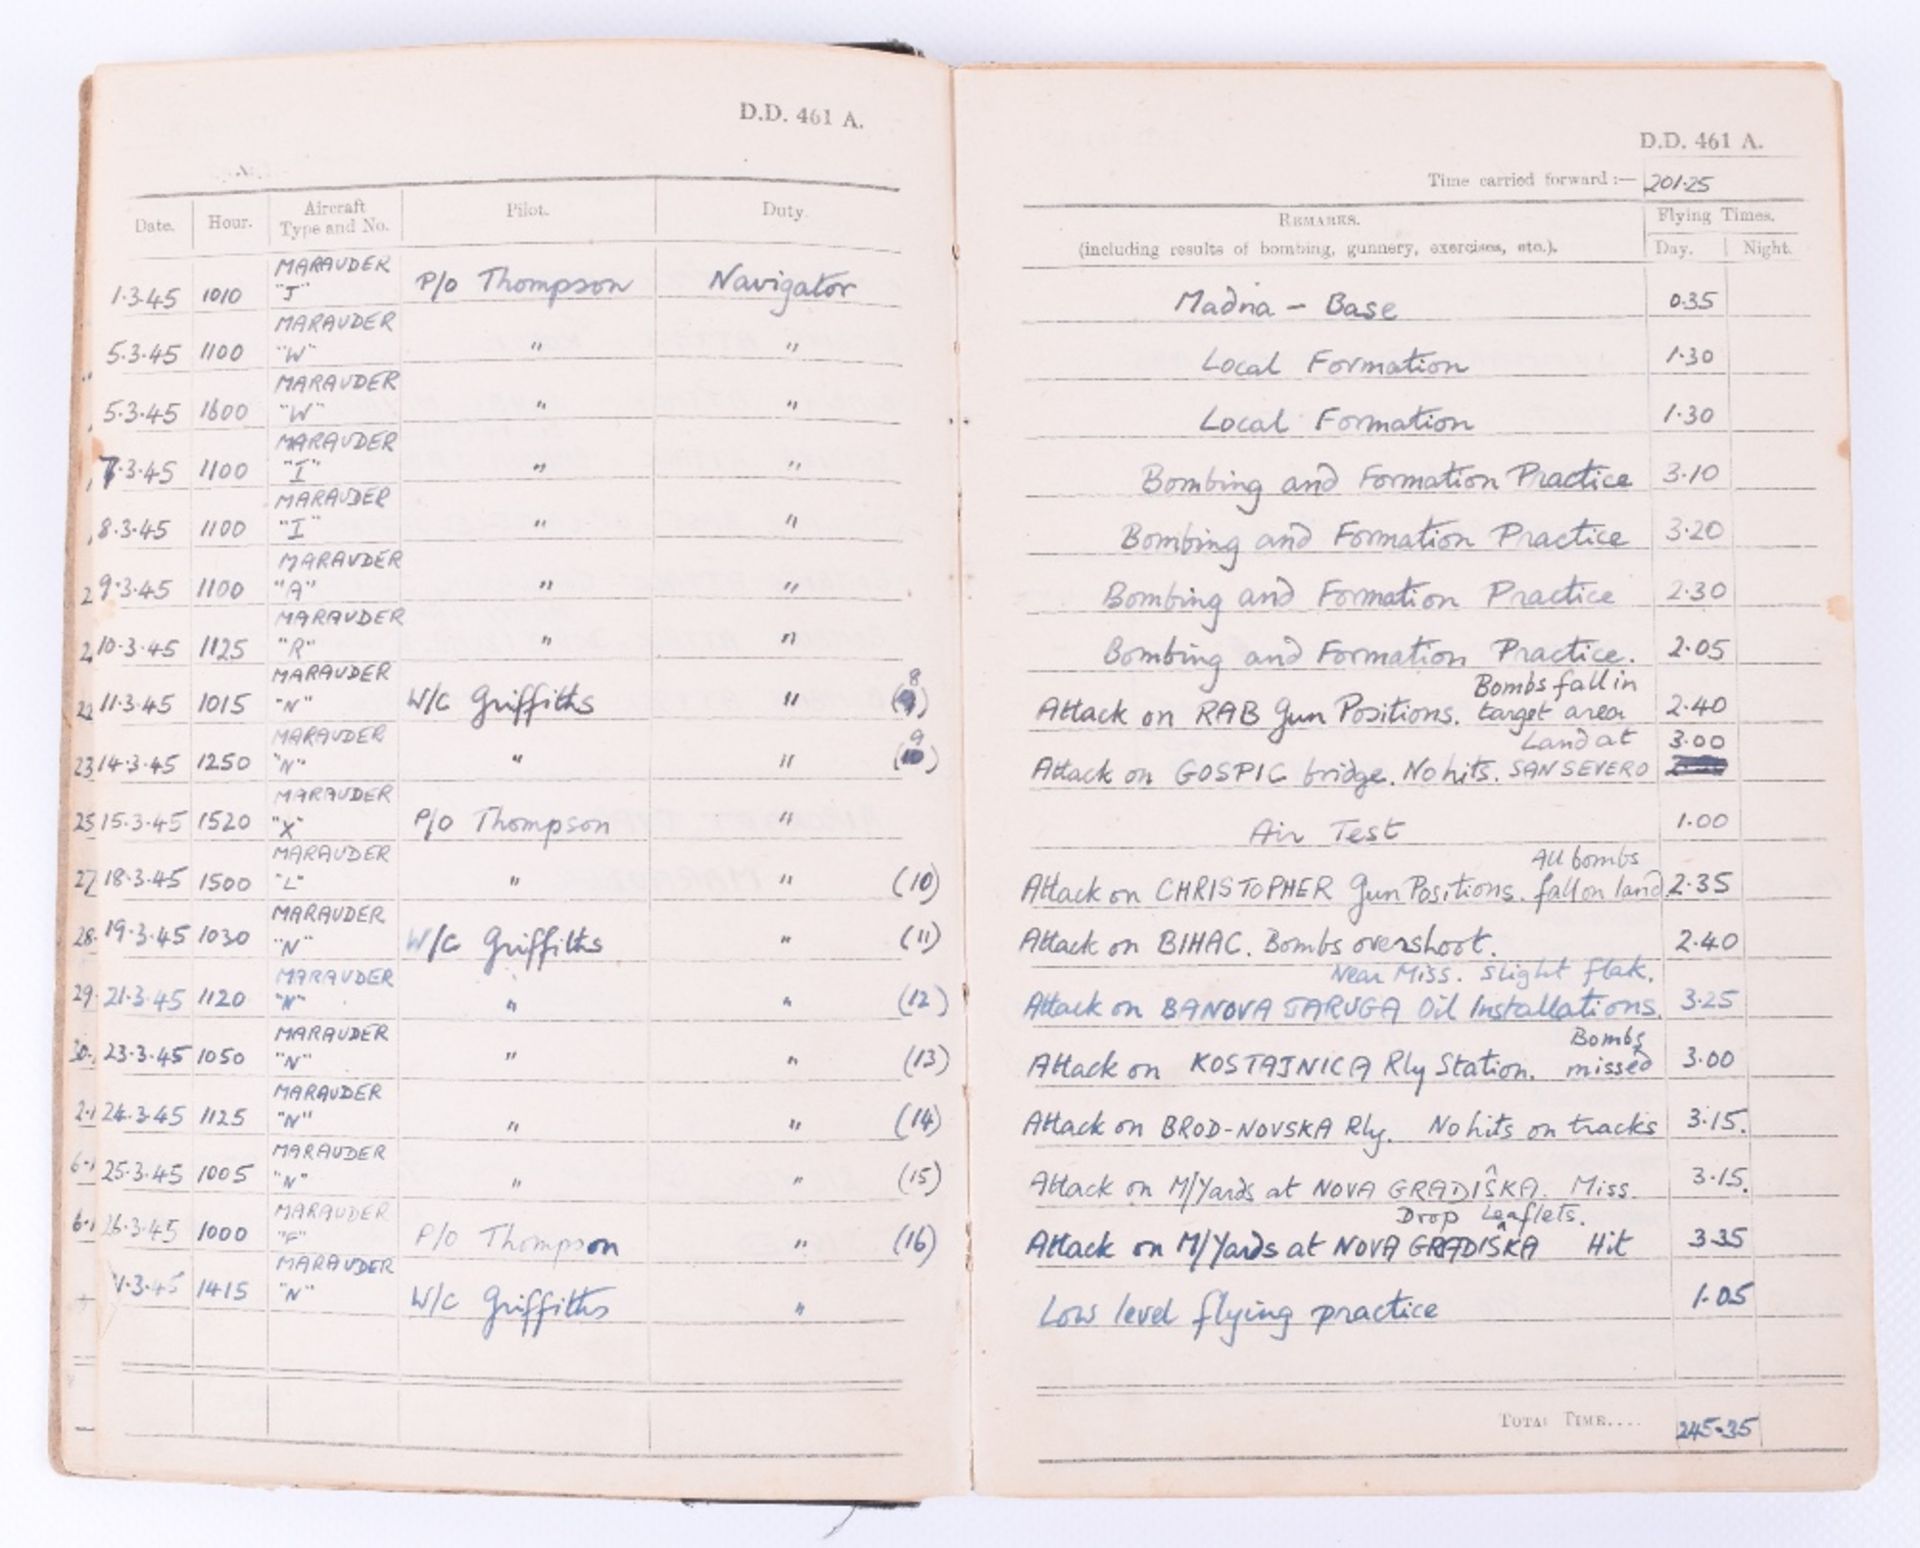 D.D. 461 A.
Date. Hour. Aircraft Type and No. Pilot. Duty.
MARAUDER
1.3.45 1010 "J" P/O Thompson Navigator
MARAUDER
5.3.45 1100 "W" " "
MARAUDER
5.3.45 1600 "W" " "
MARAUDER
7.3.45 1100 "I" " "
MARAUDER
8.3.45 1100 "I" " "
MARAUDER
2 9.3.45 1100 "A" " "
MARAUDER
2 10.3.45 1125 "R" " "
MARAUDER
22 11.3.45 1015 "N" W/C Griffiths " (8)
MARAUDER
23 14.3.45 1250 "N" " " (9)
MARAUDER
25 15.3.45 1520 "X" P/O Thompson "
MARAUDER
27 18.3.45 1500 "L" " " (10)
MARAUDER
28. 19.3.45 1030 "N" W/C Griffiths " (11)
MARAUDER
29. 21.3.45 1120 "N" " " (12)
MARAUDER
30. 23.3.45 1050 "N" " " (13)
MARAUDER
24.3.45 1125 "N" " " (14)
MARAUDER
25.3.45 1005 "N" " " (15)
MARAUDER
26.3.45 1000 "F" P/O Thompson " (16)
MARAUDER
1415 "N" W/C Griffiths "
D.D. 461 A.
Time carried forward :— 201.25
REMARKS. Flying Times.
(including results of bombing, gunnery, exercises, etc.). Day. Night.
Madna – Base 0.35
Local Formation 1.30
Local Formation 1.30
Bombing and Formation Practice 3.10
Bombing and Formation Practice 3.20
Bombing and Formation Practice 2.30
Bombing and Formation Practice. 2.05
Bombs fall in
Attack on RAB Gun Positions. target area 2.40
Land at 3.00
Attack on GOSPIC bridge. No hits. SAN SEVERO
Air Test 1.00
All bombs
Attack on CHRISTOPHER Gun Positions. fall on land. 2.35
Attack on BIHAC. Bombs overshoot. 2.40
Near Miss. Slight flak.
Attack on BANOVA JARUGA Oil Installations. 3.25
Bombs
Attack on KOSTAJNICA Rly Station. missed 3.00
Attack on BROD-NOVSKA Rly. No hits on tracks 3.15.
Attack on M/Yards at NOVA GRADIŜKA. Miss. 3.15.
Drop Leaflets.
Attack on M/Yards at NOVA GRADIŜKA Hit 3.35
Low level flying practice 1.05
TOTAL TIME.... 245.35